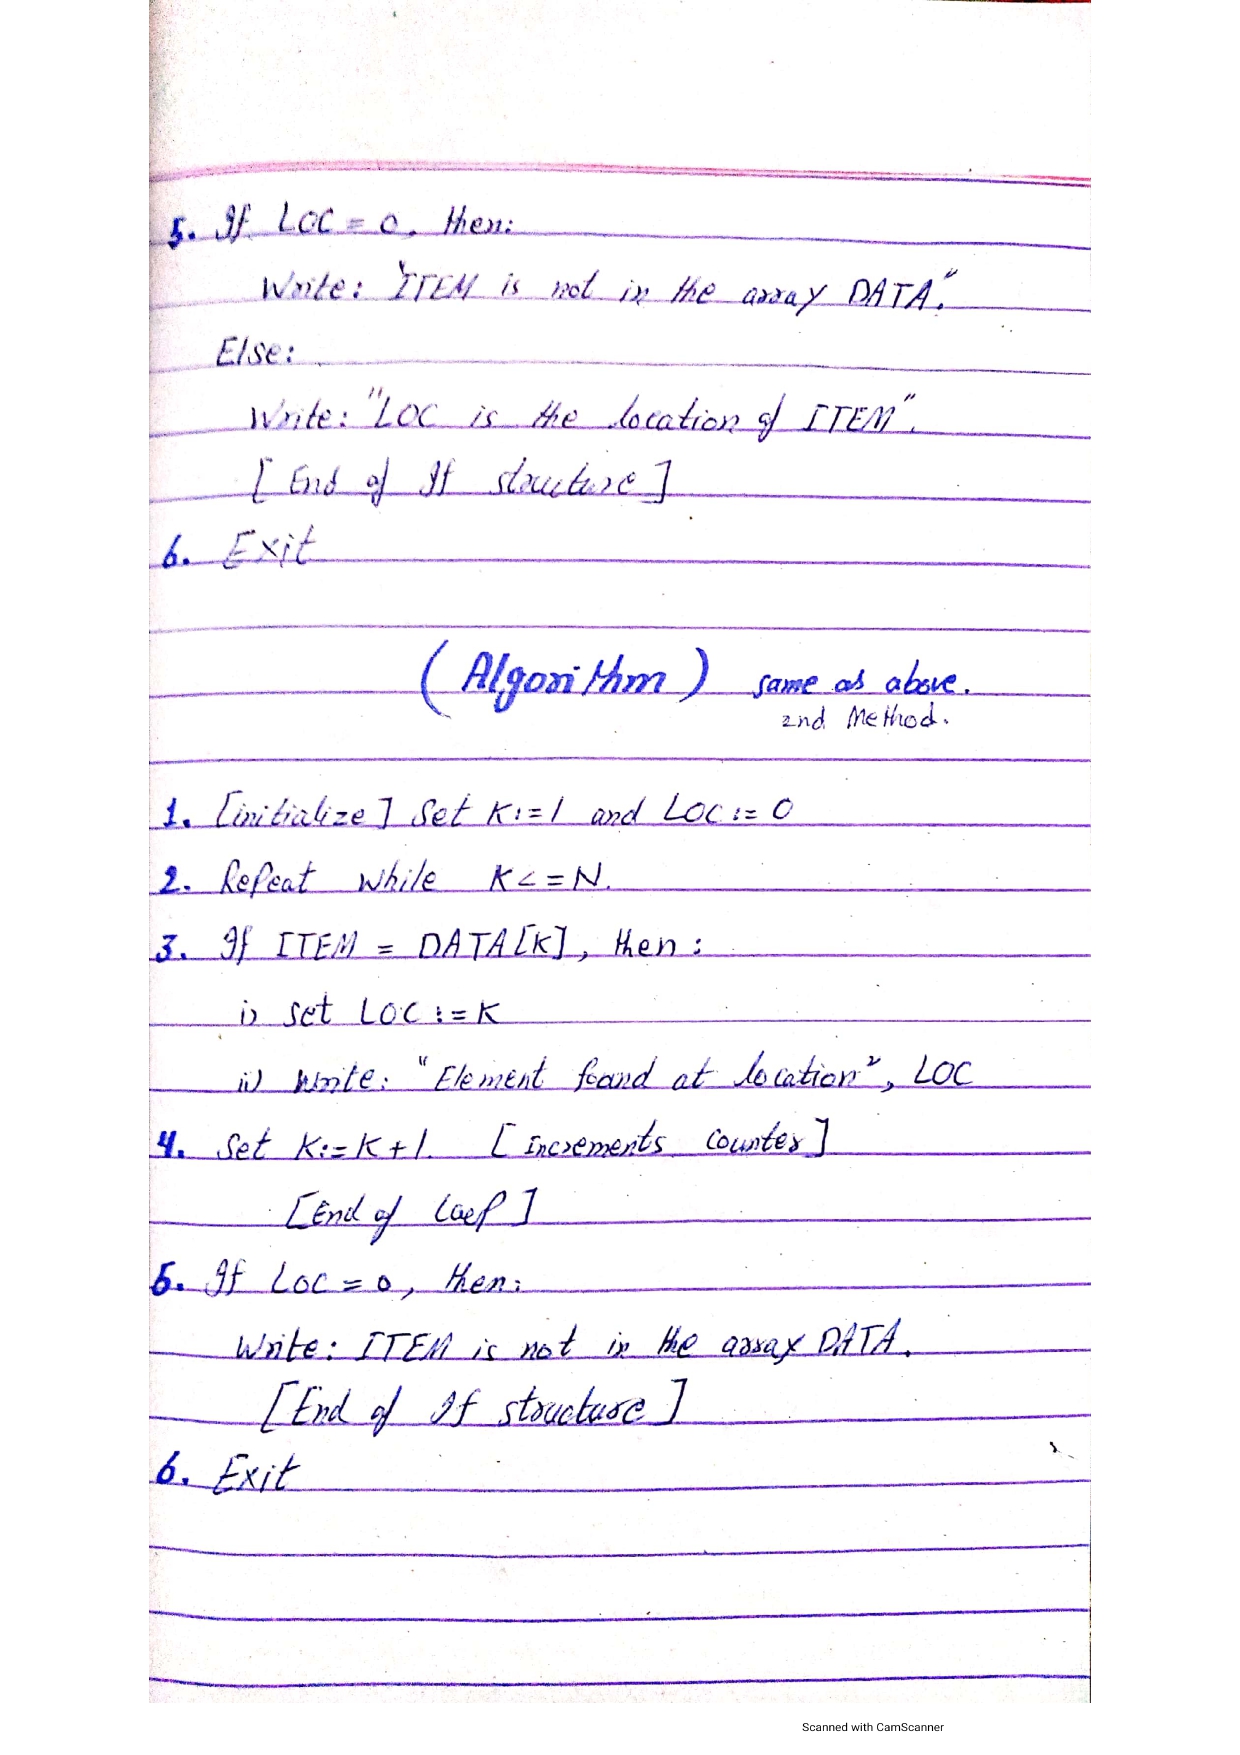 5. If LOC = 0, then:
Write: "ITEM is not in the array DATA."
Else:
Write: "LOC is the location of ITEM".
[End of If structure]
6. Exit
(Algorithm) same as above.
2nd Method.
1. [initialize] Set K:=1 and LOC:=0
2. Repeat while K<=N.
3. If ITEM = DATA[K], then:
i) set LOC:=K
ii) Write: "Element found at location", LOC
4. Set K:=K+1. [Increments counter]
[End of Loop]
5. If LOC = 0, then:
Write: ITEM is not in the array DATA.
[End of If structure]
6. Exit
Scanned with CamScanner